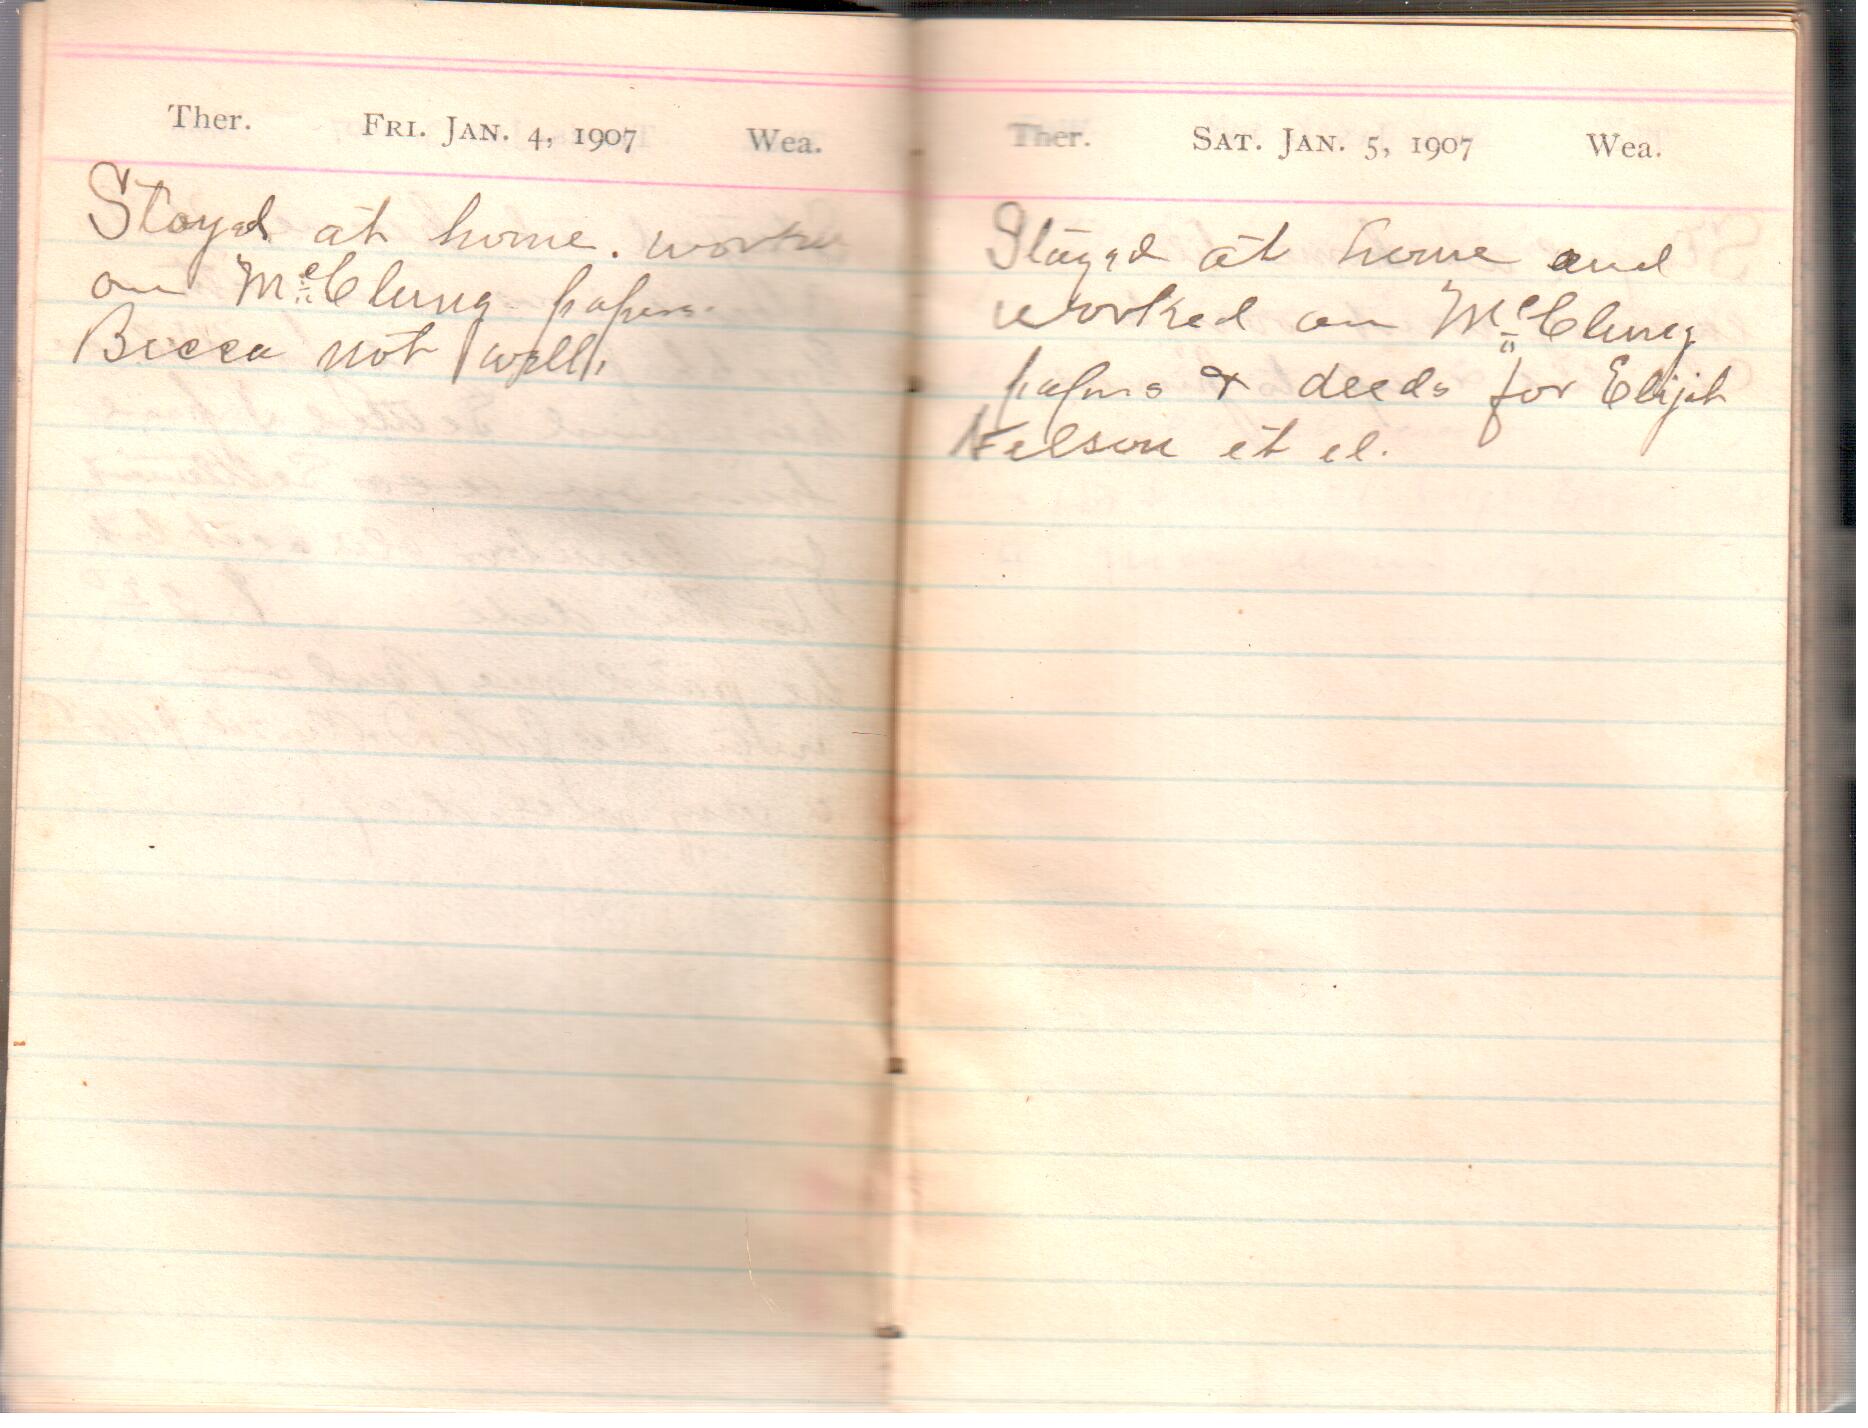 Ther. Fri. Jan. 4, 1907 Wea.
Stayed at home. worked
on McClung papers.
Becca not well.
Ther. Sat. Jan. 5, 1907 Wea.
Stayed at home and
worked on McClung
papers & deeds for Elijah
Nelson et el.